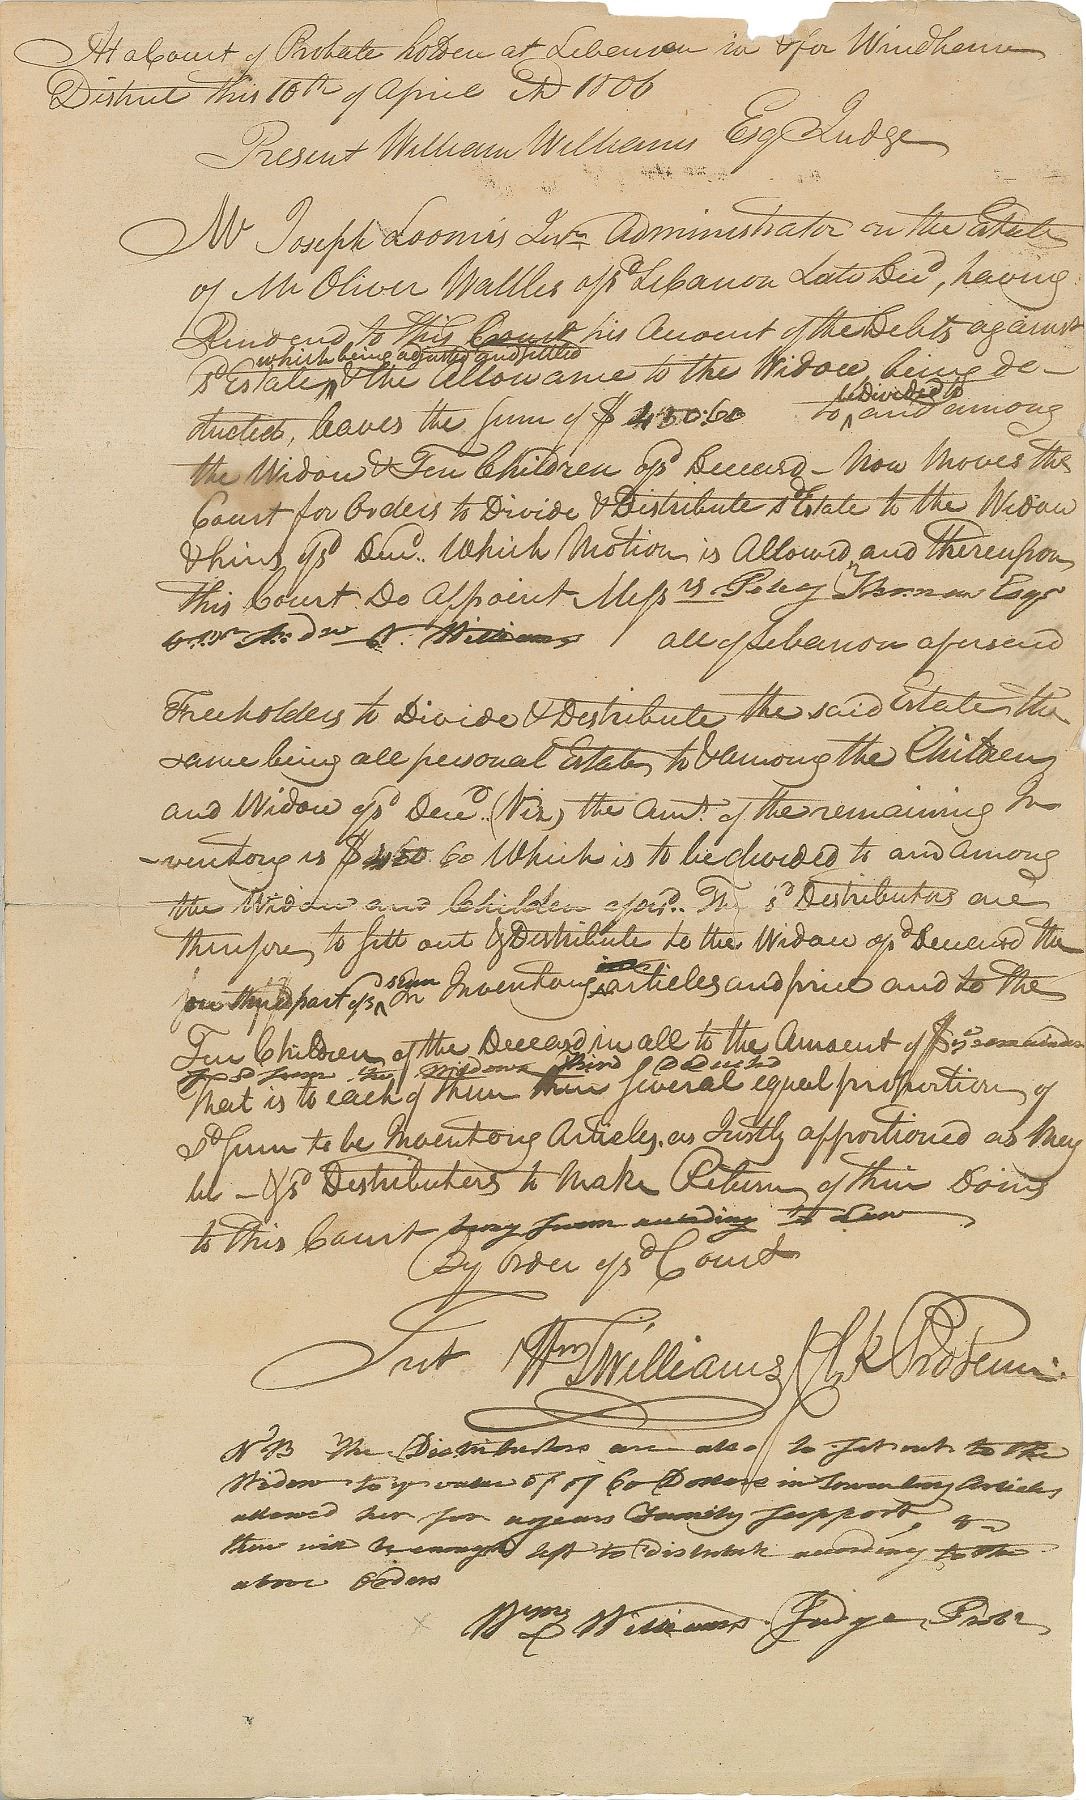 At a Court of Probate holden at Lebanon in & for Windham
District this 10th of April AD 1806
Present William Williams Esq Judge
Mr Joseph Loomis Junr Administrator on the Estate
of Mr Oliver Wattles of sd Lebanon Late Decd, having
to this Court his Amount of the Debts against
which being adjusted and settled
sd Estate & the Allowance to the Widow being de-
be Divided to
ducted, leaves the Sum of $ 450:60 to and among
the Widow & Ten Children of sd Deceasd - Now Moves the
Court for Orders to Divide & Distribute sd Estate to the Widow
& heirs of sd Decd.. Which Motion is Allowed, and Thereupon
this Court Do Appoint Messrs Peleg Thomas Esqr
Williams all of Lebanon aforesaid
Freeholders to Divide & Distribute the said Estate the
same being all personal Estate, to & among the Children
and Widow of sd Decd. (Viz) the Amt of the remaining In
-ventory is $ 450 60 Which is to be divided to and among
the Widow and Children aforsd.. The sd Distributors are
therefore to Sett out & Distribute to the Widow of sd Deceased the
sum
one third part of sd In Inventory articles and price and to the
Ten Children of the Deceasd in all to the Amount of $ sd remainder
of sd sum the Widows third deducted
that is to each of them their several equal proportion of
sd Sum to be Inventory Articles, as Justly apportioned as May
be - & sd Distributers to Make Return of their Doings
to this Court being sworn according to Law
By Order of sd Court
Test Wm T Williams Clk Protemi.
NB The Distributors are also to set out to the
Widow to ye value of of 60 Dollars in Inventory Articles
allowed her for a years Family support, &
there will be enough left to distribute according to the
above Orders
Wm Williams Judge Probe